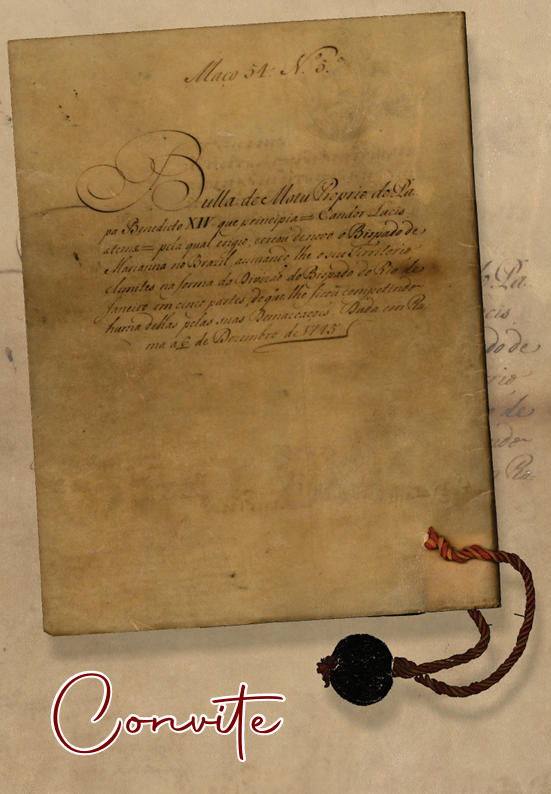 Maço 54. N.º 5.º
Bulla de Motu Proprio do Pa-
pa Benedicto XIV que principia = Candor Lucis
æternæ = pela qual erigio, e creou de novo o Bispado de
Marianna no Brazil assinando lhe o seu Territorio
e limites na forma da Divizaõ do Bispado do Rio de
Janeiro em cinco partes, de que lhe ficou competindo
huma dellas pelas suas Demarcaçoes. Dada em Ro-
ma a 6 de Dezembro de 1745
Convite